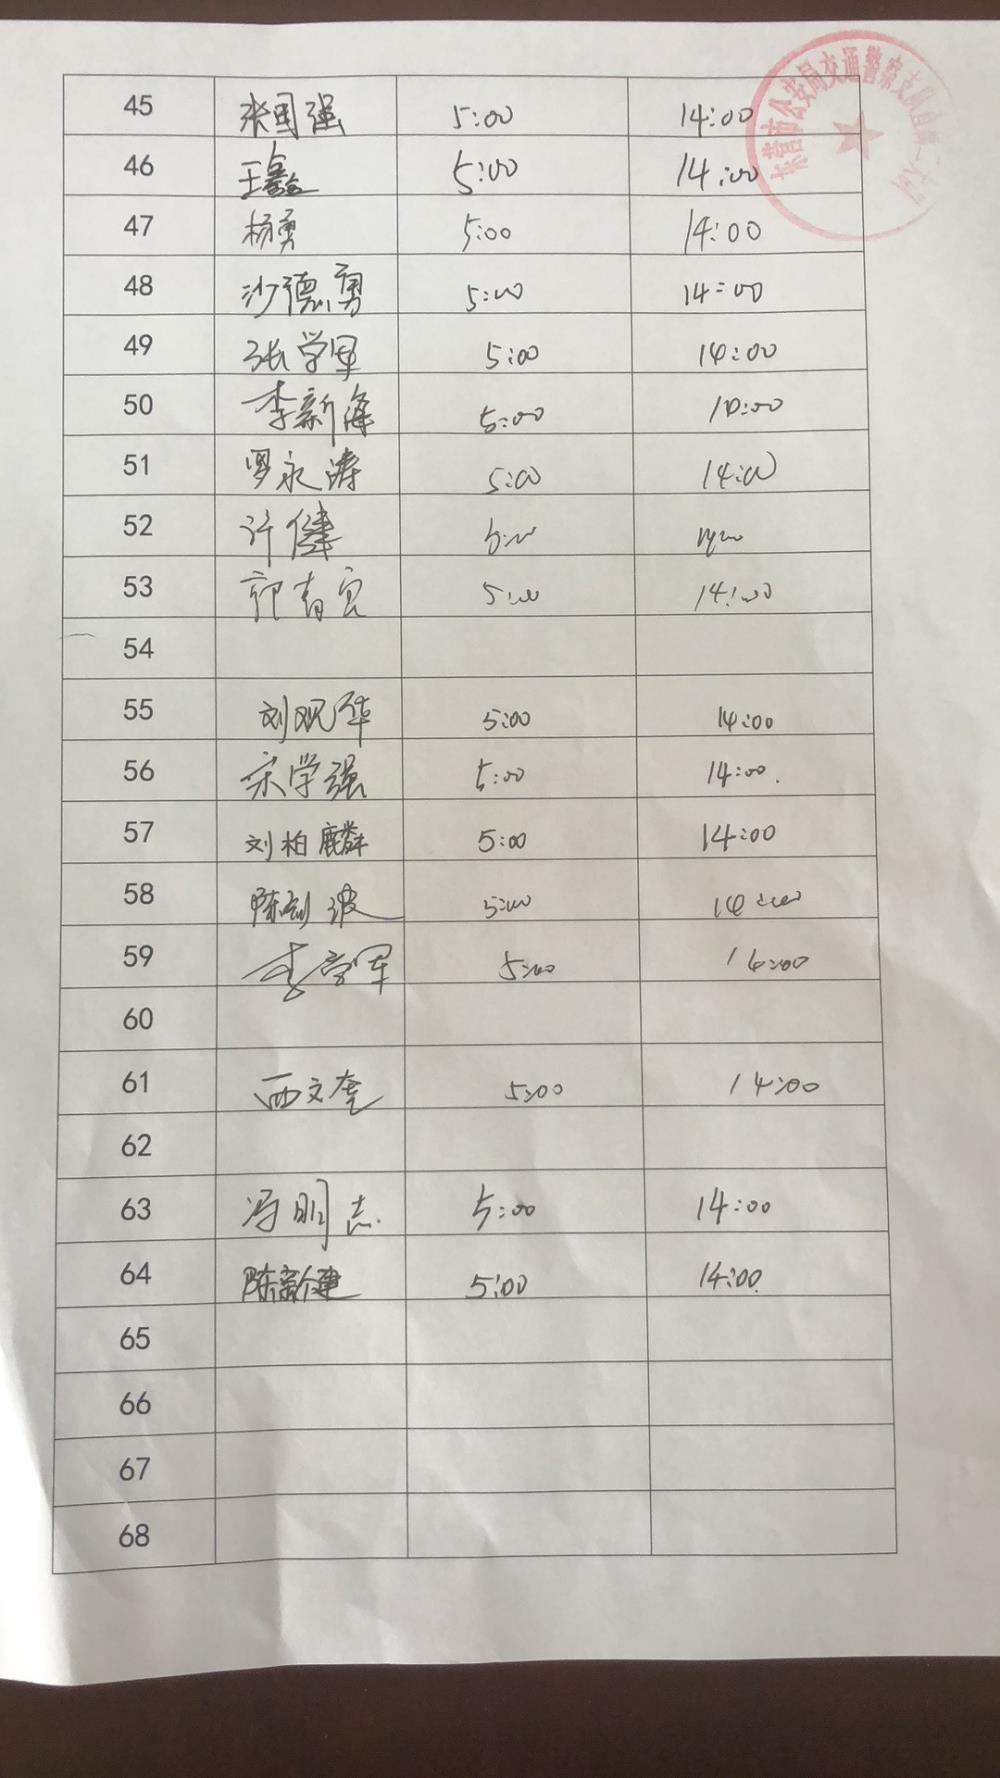 东营市公安局交通警察支队直属一大队
45 张国强 5:00 14:00
46 5:00 14:00
47 杨勇 5:00 14:00
48 沙德勇 5:00 14:00
49 张学军 5:00 14:00
50 李新海 5:00 14:00
51 罗永涛 5:00 14:00
52 许健 5:00 14:00
53 郭青宾 5:00 14:00
54
55 刘观华 5:00 14:00
56 宋学强 5:00 14:00.
57 刘柏麟 5:00 14:00
58 陈剑波 5:00 14:00
59 李学军 5:00 14:00
60
61 西文奎 5:00 14:00
62
63 冯明志 5:00 14:00
64 陈新建 5:00 14:00
65
66
67
68